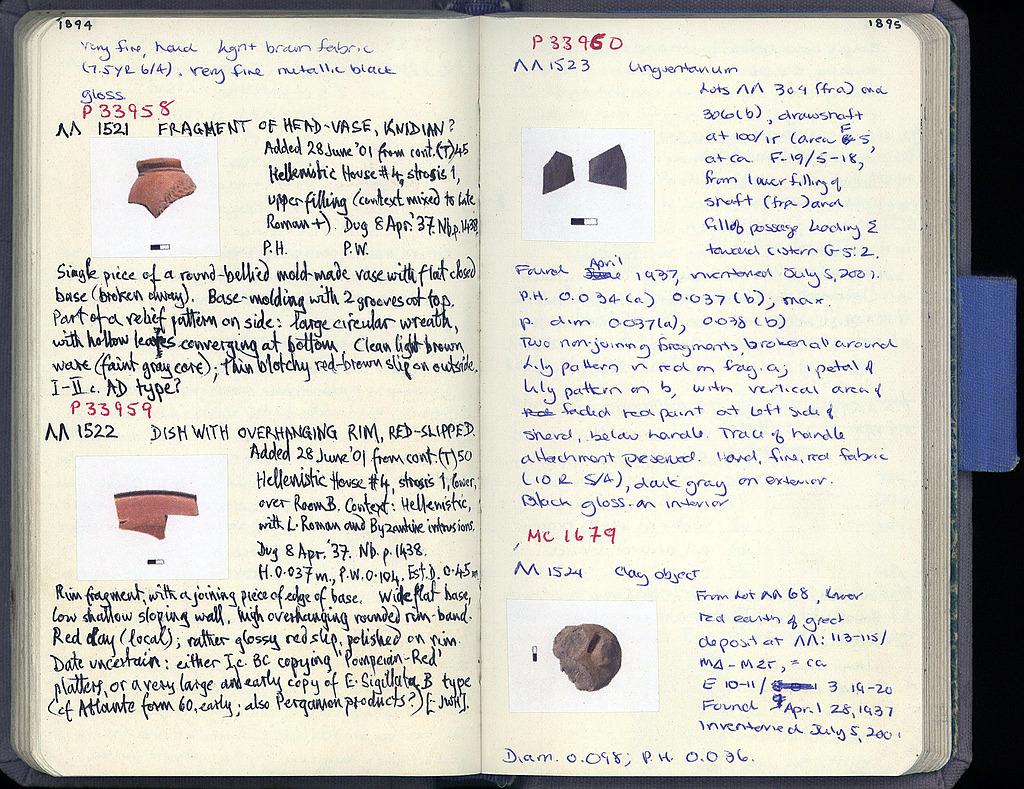 1894
very fine, hard light brown fabric
(7.5YR 6/4). very fine metallic black
gloss.
P 33958
ΛΛ 1521 FRAGMENT OF HEAD-VASE, KNIDIAN?
Added 28 June '01 from cont. (T) 45
Hellenistic House #4, strosis 1,
upper filling (context mixed to Late
Roman +). Dug 8 Apr. '37. Nb. p. 1438.
P.H. P.W.
Single piece of a round-bellied mold-made vase with flat closed
base (broken away). Base-molding with 2 grooves at top.
Part of a relief pattern on side: large circular wreath,
with hollow leaves converging at bottom. Clean light brown
ware (faint gray core); thin blotchy red-brown slip on outside.
I-II c. AD type?
P 33959
ΛΛ 1522 DISH WITH OVERHANGING RIM, RED-SLIPPED.
Added 28 June '01 from cont. (T) 50
Hellenistic House #4, strosis 1, lower,
over Room B. Context: Hellenistic,
with L. Roman and Byzantine intrusions.
Dug 8 Apr. '37. Nb. p. 1438.
H. 0.037 m., P.W. 0.104, Est. D. 0.45 m
Rim fragment, with a joining piece of edge of base. Wide flat base,
low shallow sloping wall, high overhanging rounded rim-band.
Red clay (local); rather glossy red slip, polished on rim.
Date uncertain: either I c. BC copying "Pompeian-Red"
platters, or a very large and early copy of E. Sigillata B type
(cf Atlante form 60, early; also Pergamon products?) [- JWH].
1895
P 33960
ΛΛ 1523 Unguentarium
Lots ΛΛ 304 (fr a) and
306 (b), drawshaft
at 100/ΙΓ (area F 5,
at ca. F-19/5-18,
from lower filling of
shaft (fr a) and
fill of passage leading Σ
toward cistern G 5:2.
Found April 1937, inventoried July 5, 2001.
P.H. 0.034 (a) 0.037 (b); max.
p. dim 0.037 (a), 0.038 (b)
Two non-joining fragments, broken all around
Lily pattern in red on frag. a; 1 petal of
lily pattern on b, with vertical area of
faded red paint at left side of
sherd, below handle. Trace of handle
attachment preserved. Hard, fine, red fabric
(10 R 5/4), dark gray on exterior.
Black gloss on interior
MC 1679
ΛΛ 1524 Clay object
From Lot ΛΛ 68, lower
red earth of great
deposit at ΛΛ: 113-115/
= ca
E 10-11/ 3 19-20
Found April 28, 1937
Inventoried July 5, 2001
Diam. 0.098; P.H. 0.036.